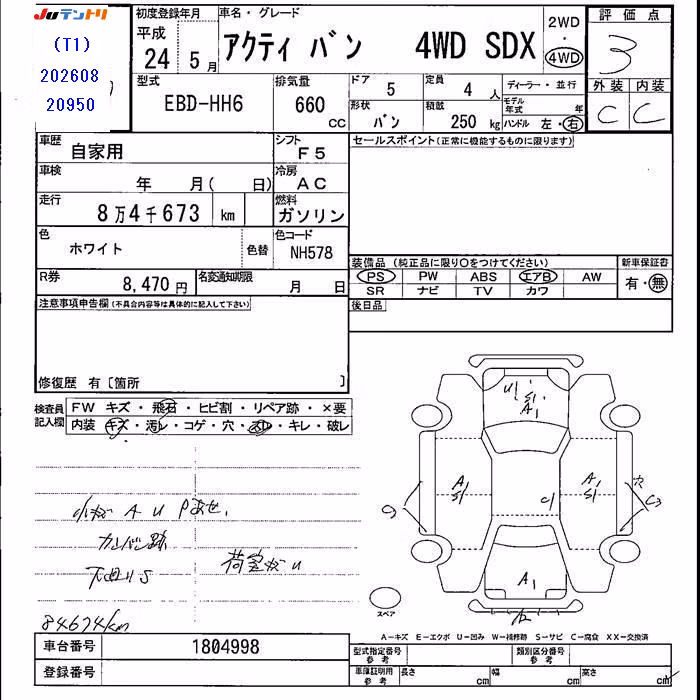 JUテントリ
(T1)
202608
20950
初度登録年月
平成
24 5月
車名・グレード
アクティ バン 4WD SDX
2WD
・
4WD
評価点
3
外装 内装
C C
型式
EBD-HH6
排気量
660
CC
ドア
5
定員
4 人
ディーラー・並行
形状
バン
積載
250 kg
モデル年式 年
ハンドル 左・右
車歴
自家用
シフト
F5
セールスポイント(正常に機能するものに限ります)
車検
年 月( 日)
冷房
AC
走行
8万4千673 km
燃料
ガソリン
色
ホワイト
色替
色コード
NH578
装備品 (純正品に限り○をつけてください)
新車保証書
PS PW ABS エアB AW
有・無
SR ナビ TV カワ
R券
8,470円
名変通知期限
月 日
後日品
注意事項申告欄(不具合内容等は具体的に記入して下さい)
修復歴 有〔箇所 〕
検査員記入欄
FW キズ・飛石・ヒビ割・リペア跡・×要
内装 キズ・汚レ・コゲ・穴・スレ・キレ・破レ
A U
カンバン跡
下廻りS
荷室 U
84674km
U
S1
A1
A
S1
A
S1
A1
スペア
A-キズ E-エクボ U-凹み W-補修跡 S-サビ C-腐食 XX-交換済
車台番号
1804998
登録番号
型式指定番号
参考
類別区分番号
参考
車庫証明用
参考
長さ cm
幅 cm
高さ cm